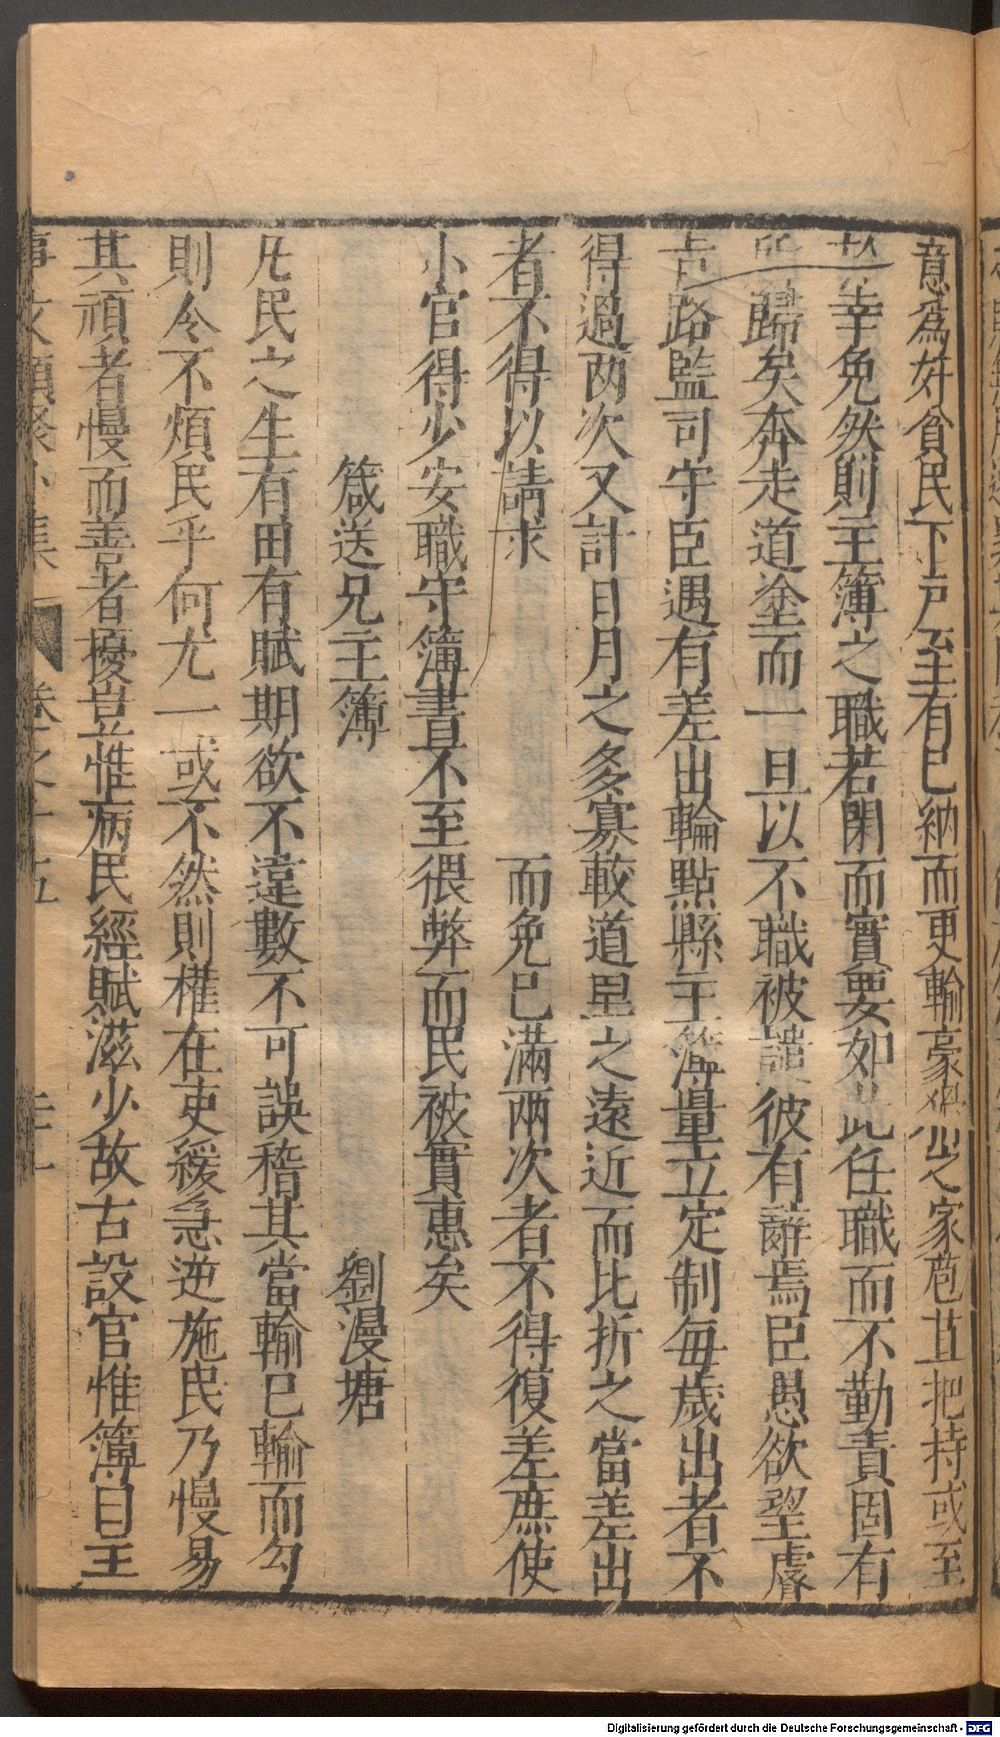 意為奸貪民下戶至有已納而更輸豪猾公之家苞苴把持或至
幸免然則主簿之職若閑而實要如此任職而不勤責固有
歸矣奔走道塗而一旦以不職被譴彼有辭焉臣愚欲望睿
旨路監司守臣遇有差出輪點縣主簿量立定制每歲出者不
得過兩次又計日月之多寡較道里之遠近而比折之當差出
者不得以請求 而免已滿兩次者不得復差庶使
小官得少安職守簿書不至猥弊而民被實惠矣
箴送兄主簿 劉漫塘
凡民之生有田有賦期欲不違數不可誤稽其當輸已輸而勾
則令不煩民乎何尤一或不然則權在吏緩急逆施民乃慢易
其頑者慢而善者擾豈惟病民經賦滋少故古設官惟簿目主
事文類聚外集 卷之十五
Digitalisierung gefördert durch die Deutsche Forschungsgemeinschaft - DFG